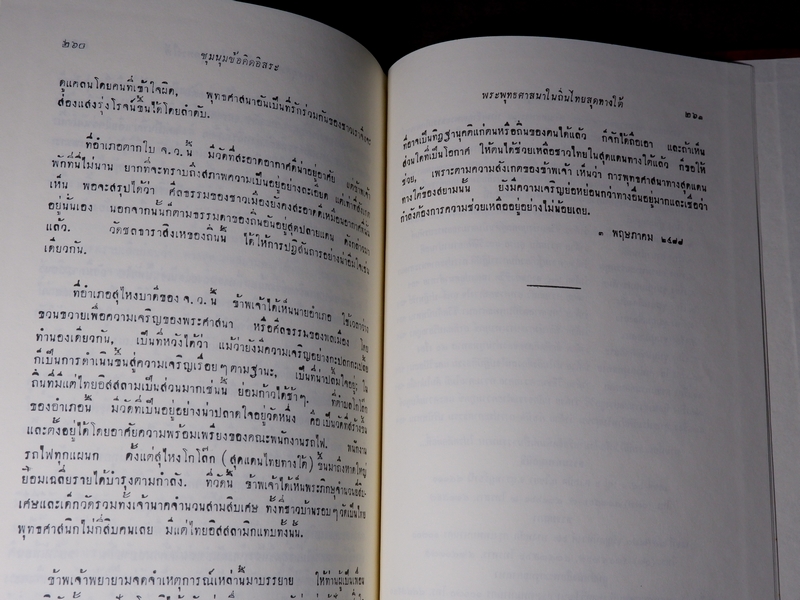 ๒๖๐
ชุมนุมข้อคิดอิสระ
ดูแคลนโดยคนที่เข้าใจผิด, พุทธศาสนาอันเป็นที่รักร่วมกันของชาวเราจึงจะ
ส่องแสงรุ่งโรจน์ขึ้นได้โดยลำดับ.
ที่อำเภอตากใบ จ.ว. นี้ มีวัดที่สะอาดอากาศดีน่าอยู่อาศัย แต่ข้าพเจ้า
พักที่นี่ไม่นาน ยากที่จะทราบถึงสภาพความเป็นอยู่อย่างละเอียด แต่เท่าที่สังเกต
เห็น พอจะสรุปได้ว่า ศีลธรรมของชาวเมืองยังคงสะอาดดีเหมือนอากาศที่นั่น
อยู่นั่นเอง นอกจากนั้นก็ตามธรรมดาของถิ่นอันอยู่สุดปลายแดน ดังกล่าวมา
แล้ว. วัดชลธาราสิงเหของถิ่นนี้ ได้ให้การปฏิสันถารอย่างน่าอิ่มใจเช่น
เดียวกัน.
ที่อำเภอสุไหงบาดีของ จ.ว. นี้ ข้าพเจ้าได้เห็นนายอำเภอ ใช้เวลาว่าง
ขวนขวายเพื่อความเจริญของพระศาสนา หรือศีลธรรมของพลเมือง โดย
ทำนองเดียวกัน, เป็นที่หวังได้ว่า แม้ว่ายังมีความเจริญอย่างกะปลกกะเปลี้ย
ก็เป็นการดำเนินขึ้นสู่ความเจริญเรื่อยๆตามฐานะ, เป็นที่น่าปลื้มใจอยู่. ใน
ถิ่นที่มีแต่ไทยอิสสลามเป็นส่วนมากเช่นนี้ ย่อมก้าวได้ช้าๆ. ที่ตำบลโกโล๊ก
ของอำเภอนี้ มีวัดที่เป็นอยู่อย่างน่าปลาดใจอยู่วัดหนึ่ง คือเป็นวัดที่สร้างขึ้น
และตั้งอยู่ได้โดยอาศัยความพร้อมเพรียงของคณะพนักงานรถไฟ. พนักงาน
รถไฟทุกแผนก ตั้งแต่สุไหงโกโล๊ก (สุดแดนไทยทางใต้) ขึ้นมาถึงหาดใหญ่
ยอมเฉลี่ยรายได้บำรุงตามกำลัง. ที่วัดนี้ ข้าพเจ้าได้เห็นพระภิกษุจำนวนยี่สิบ-
เศษและเด็กวัดรวมทั้งเจ้านาคจำนวนสามสิบเศษ ทั้งที่ชาวบ้านรอบๆวัดเป็นไทย
พุทธศาสนิกไม่กี่สิบคนเลย มีแต่ไทยอิสสลามิกแทบทั้งนั้น.
ข้าพเจ้าพยายามจดจำเหตุการณ์เหล่านั้นมาบรรยาย ให้ท่านผู้เป็นเพื่อน
พระพุทธศาสนาในถิ่นไทยสุดทางใต้
๒๖๑
ที่อาจเป็นทิฏฐานุคติแก่ตนหรือถิ่นของตนได้แล้ว ก็จักได้ถือเอา และถ้าเห็น
ส่วนใดที่เป็นโอกาส ให้ตนได้ช่วยเหลือชาวไทยในสุดแดนทางใต้แล้ว ก็ขอให้
ช่วย, เพราะตามความสังเกตของข้าพเจ้า เห็นว่า การพุทธศาสนาทางสุดแดน
ทางใต้ของสยามนั้น ยังมีความเจริญอ่อหย่อนกว่าทางอื่นอยู่มากและเชื่อว่า
กำลังต้องการความช่วยเหลืออยู่อย่างไม่น้อยเลย.
๓ พฤษภาคม ๒๔๗๘